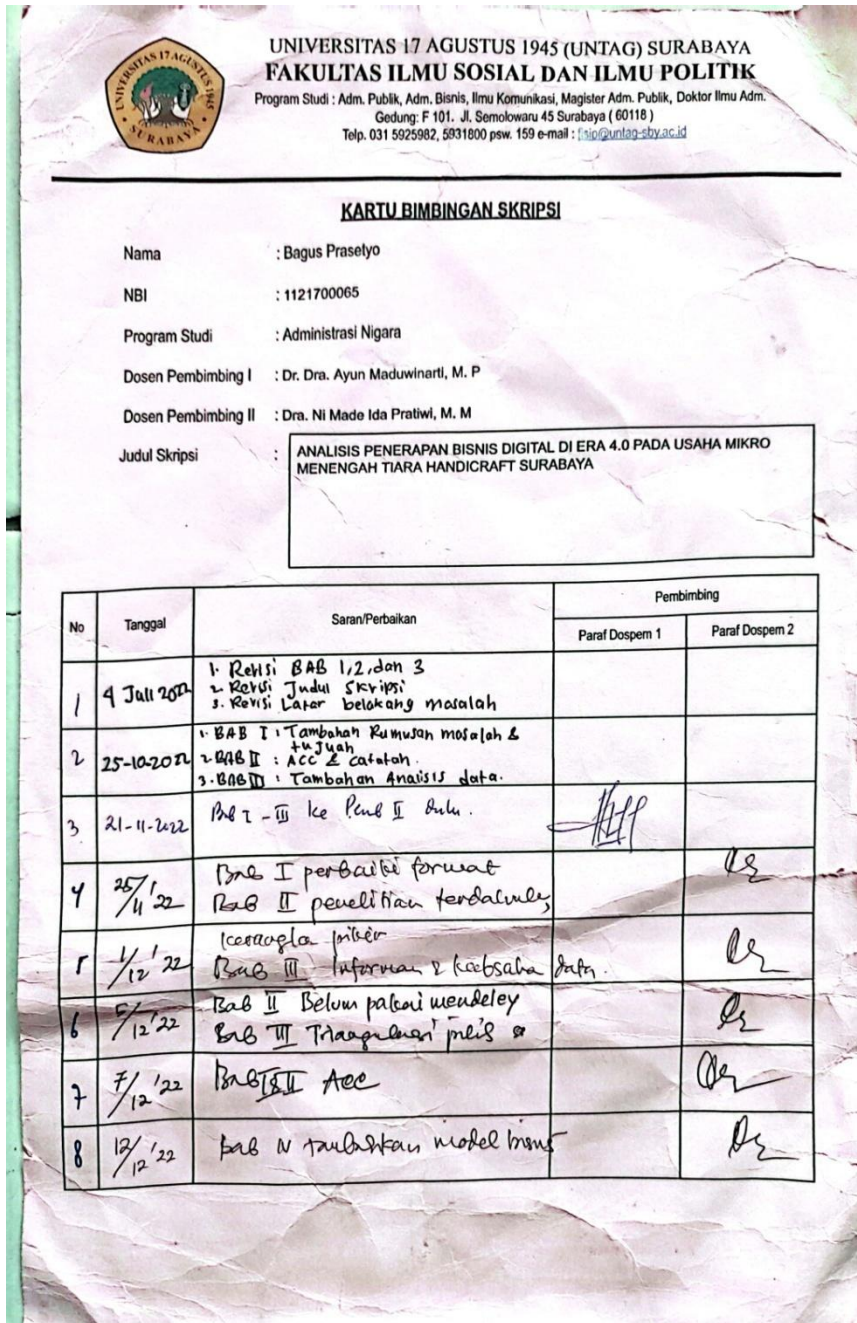 UNIVERSITAS 17 AGUSTUS 1945
SURABAYA
UNIVERSITAS 17 AGUSTUS 1945 (UNTAG) SURABAYA
FAKULTAS ILMU SOSIAL DAN ILMU POLITIK
Program Studi : Adm. Publik, Adm. Bisnis, Ilmu Komunikasi, Magister Adm. Publik, Doktor Ilmu Adm.
Gedung: F 101. Jl. Semolowaru 45 Surabaya ( 60118 )
Telp. 031 5925982, 5931800 psw. 159 e-mail : fisip@untag-sby.ac.id
KARTU BIMBINGAN SKRIPSI
Nama : Bagus Prasetyo
NBI : 1121700065
Program Studi : Administrasi Nigara
Dosen Pembimbing I : Dr. Dra. Ayun Maduwinarti, M. P
Dosen Pembimbing II : Dra. Ni Made Ida Pratiwi, M. M
Judul Skripsi : ANALISIS PENERAPAN BISNIS DIGITAL DI ERA 4.0 PADA USAHA MIKRO
MENENGAH TIARA HANDICRAFT SURABAYA
No Tanggal Saran/Perbaikan Pembimbing
Paraf Dospem 1 Paraf Dospem 2
1 4 Juli 2022 1. Revisi BAB 1,2, dan 3
2. Revisi Judul Skripsi
3. Revisi Latar belakang masalah
2 25-10-2022 1. BAB I : Tambahan Rumusan masalah &
tujuan
2. BAB II : ACC & catatan.
3. BAB III : Tambahan Analisis data.
3 21-11-2022 Bab I - III ke Pemb II dulu.
4 25/11 '22 Bab I perbaiki format
Bab II penelitian terdahulu,
kerangka pikir
5 1/12 '22 Bab III Informan & keabsaha data.
6 /12 '22 Bab II Belum pakai mendeley
Bab III Triangulasi
7 7/12 '22 Bab I & II Acc
8 12/12 '22 Bab IV tambahkan model bisnis